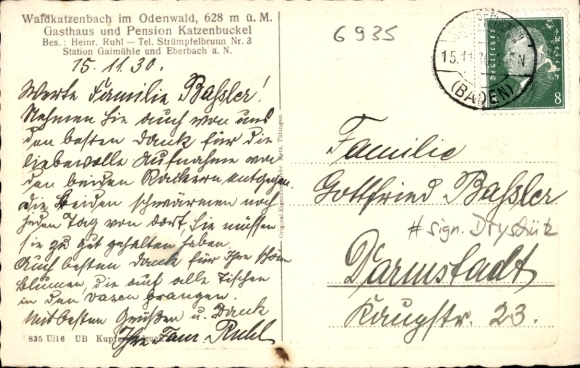 Waldkatzenbach im Odenwald, 628 m ü. M.
Gasthaus und Pension Katzenbuckel
Bes.: Heinr. Ruhl — Tel. Strümpfelbrunn Nr. 3
Station Gaimühle und Eberbach a. N.
15.11.30.
Werte Familie Baßler!
Nehmen Sie auch von uns
den besten Dank für die
liebevolle Aufnahme von
den beiden Rackern entgegen.
Die beiden schwärmen noch
jeden Tag von dort, Sie müssen
sie zu gut gehalten haben.
Auch besten Dank für Ihre schön
blumen, die auf alle Tischen
in den Vasen prangen.
Mit besten Grüßen u. Dank
Ihre Fam. Ruhl
835 U/16 UB
6935
15.11.30
(BADEN)
8
Familie
Gottfried Baßler
# sign.
Darmstadt
Kaupstr. 23.